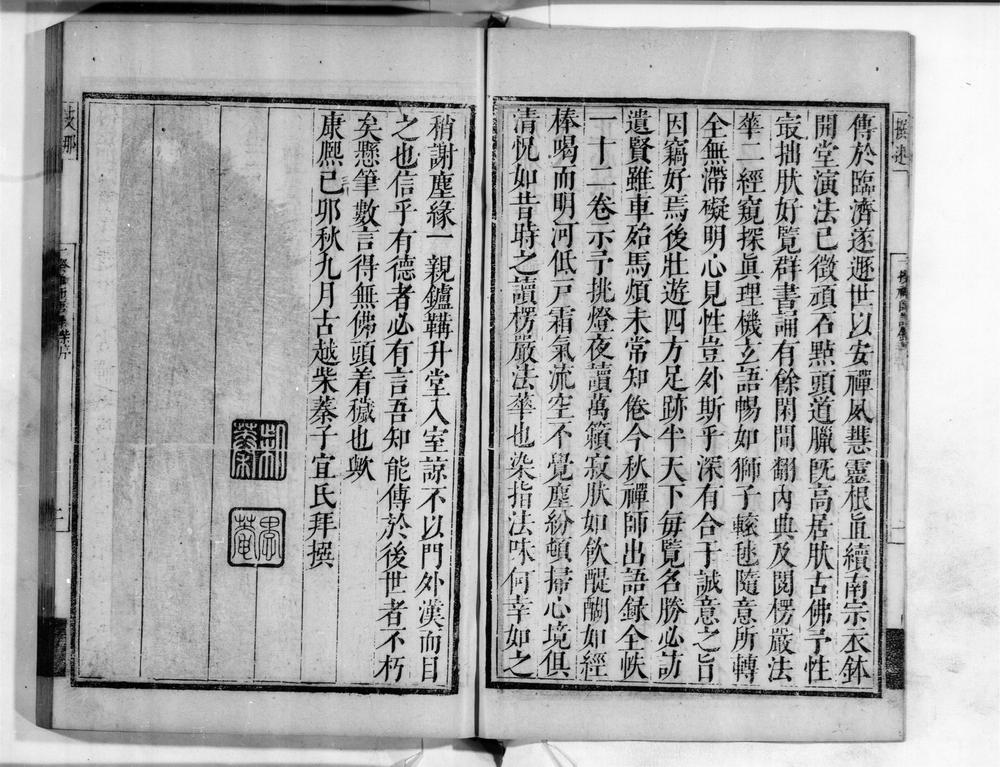 傳於臨濟遂遯世以安禪夙慧靈根直續南宗衣鉢
開堂演法已徵頑石點頭道臘旣高居肰古佛予性
寂拙肰好覽群書誦有餘閑閒翻內典及閱楞嚴法
華二經窺探眞理機立語暢如獅子䡆毬隨意所轉
全無滯礙明心見性豈外斯乎深有合于誠意之旨
因竊好焉後壯遊四方足跡半天下每覽名勝必訪
遺賢雖車殆馬煩未常知倦今秋禪師出語録全帙
一十二卷示予挑燈夜讀萬籟寂肰如飲醍醐如經
棒喝而明河低戸霜氣流空不覺塵紛頓掃心境俱
清恍如昔時之讀楞嚴法華也染指法味何幸如之
稍謝塵緣一親鑪鞲升堂入室諒不以門外漢而目
之也信乎有德者必有言吾知能傳於後世者不朽
矣懸筆數言得無佛頭着穢也歟
康熙己卯秋九月古越柴蓁子宜氏拜撰
柴蓁